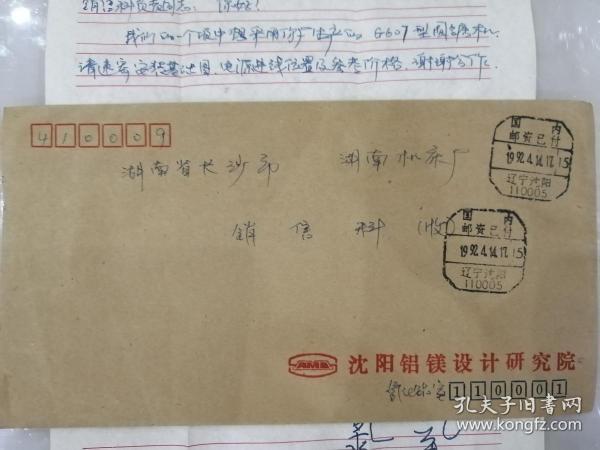 销售科负责同志：你好！
我们的一个项中想采用你厂生产的 G607 型圆锯机.
请速寄安装基础图、电源进线位置及参考价格. 谢谢合作.
410009
湖南省长沙市 湖南机床厂
销售科（收）
国内
邮资已付
1992.4.14.17.15
辽宁沈阳
110005
国内
邮资已付
1992.4.14.17.15
辽宁沈阳
110005
AMD
沈阳铝镁设计研究院
110001
孔夫子旧书网
www.kongfz.com